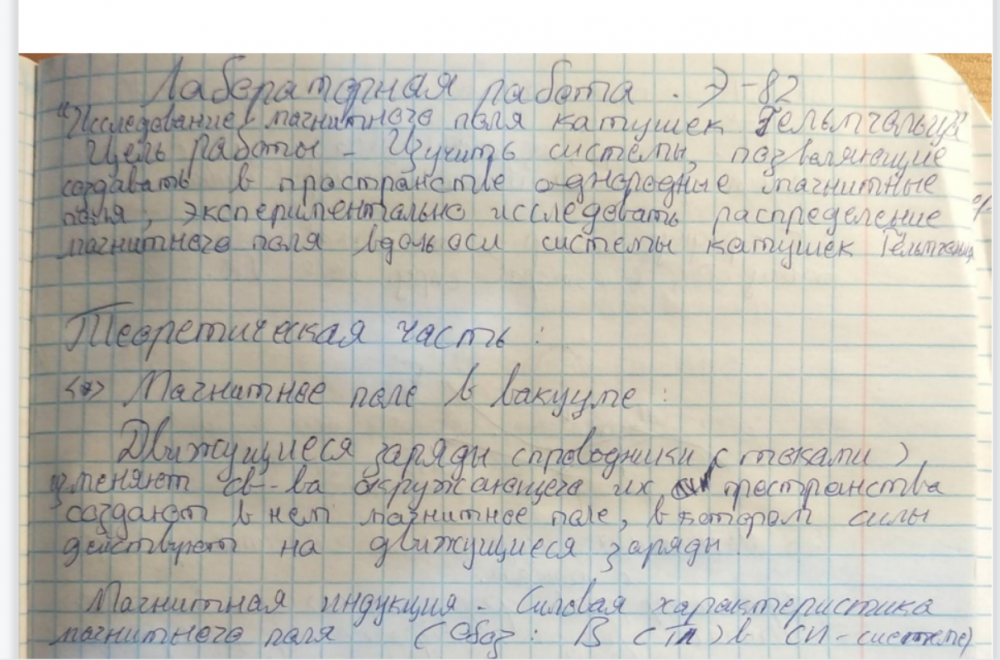 Лабораторная работа . Э-82
"Исследование магнитного поля катушек Гельмгольца"
Цель работы - Изучить системы, позволяющие
создавать в пространстве однородные магнитные
поля, экспериментально исследовать распределение
магнитного поля вдоль оси системы катушек
Теоретическая часть:
Магнитное поле в вакууме:
Движущиеся заряды (проводники с токами)
изменяют св-ва окружающего их пространства
создают в нем магнитное поле, в котором силы
действуют на движущиеся заряды.
Магнитная индукция - Силовая характеристика
магнитного поля (Обоз: B (Тл) в СИ-системе)